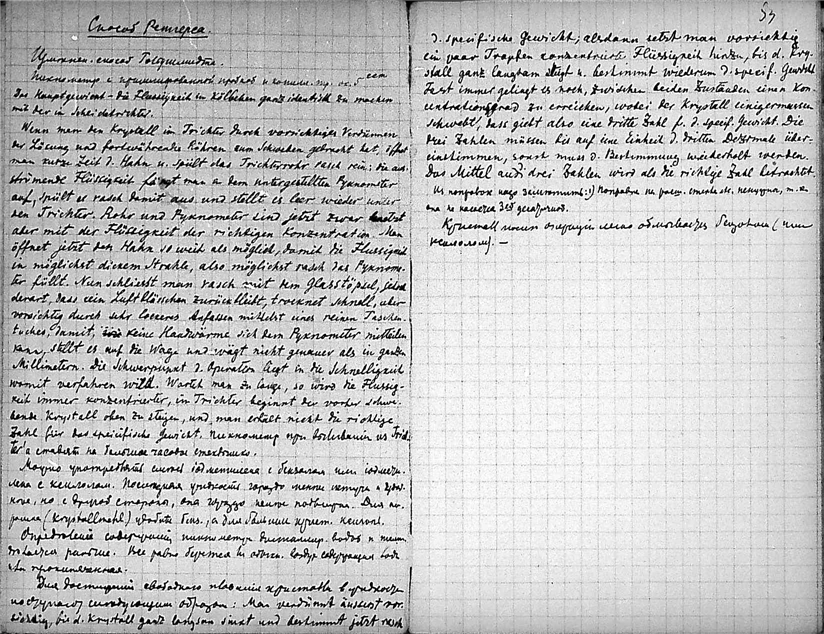 Способ Ретгерса.
способ Гольдшмидта.
Пикнометр с пришлифованной пробкой
Das Hauptgewicht – die Flüssigkeit im Kölbchen ganz identisch zu machen
mit der im Scheidetrichter.
Wenn man den Krystall im Trichter durch vorsichtiges Verdünnen
der Lösung und fortwährendes Rühren zum Schweben gebracht hat, öffnet
man kurze Zeit d. Hahn u. spült das Trichterrohr rasch rein; die aus-
strömende Flüssigkeit fängt man in dem untergestellten Pyknometer
auf, spült es rasch damit aus und stellt es leer wieder unter
den Trichter. Rohr und Pyknometer sind jetzt zwar benetzt
aber mit der Flüssigkeit der richtigen Konzentration. Man
öffnet jetzt den Hahn so weit als möglich, damit die Flüssigkeit
in möglichst dickem Strahle, also möglichst rasch das Pyknome-
ter füllt. Nun schliesst man rasch mit dem Glasstöpsel, jedoch
derart, dass kein Luftbläschen zurückbleibt, trocknet schnell, aber
vorsichtig durch sehr loceres Anfassen mittelst eines reinen Taschen-
tuches, damit keine Handwärme sich dem Pyknometer mitteilen
kann, stellt es auf die Wage und wägt nicht genauer als in ganzen
Millimetern. Die Schwerpunkt d. Operation liegt in die Schnelligkeit
womit verfahren wird. Wartet man zu lange, so wird die Flüssig-
keit immer konzentrierter, im Trichter beginnt der vorher schwe-
bende Krystall oben zu steigen, und man erhält nicht die richtige
Zahl für das specifische Gewicht. Пикнометр при
ставить на большое часовое стеклышко.
Можно употреблять смесь с бензолом или
с ксилолом. Последняя жидкость гораздо менее
но с другой стороны, она гораздо менее подвижна. Для
(Krystallmehl) удобнее бенз., а для больших крист. ксилол.
Определение пикнометра дистиллир. водой
Все равно берется
Для достижения свободного плавания кристалла в жидкости
поступают следующим образом: Man verdünnt äusserst vor-
sichtig, bis d. Krystall ganz langsam sinkt und bestimmt jetzt rasch
d. specifische Gewicht; alsdann setzt man vorsichtig
ein paar Tropfen konzentrierte Flüssigkeit hinzu, bis d. Kry-
stall ganz langsam steigt u. bestimmt wiederum d. specif. Gewicht
Fast immer gelingt es noch, zwischen beiden Zuständen einen Kon-
zentrationsgrad zu erreichen, wobei der Krystall einigermassen
schwebt, dass giebt also eine dritte Zahl f. d. specif. Gewicht. Die
drei Zahlen müssen bis auf eine Einheit d. dritten Dezimale über-
einstimmen, sonst muss d. Bestimmung wiederholt werden.
Das Mittel aus d. drei Zahlen wird als die richtige Zahl betrachtet.
Из поправок надо заметить: 1) Поправка на расш. стекла ненужна, т.к.
она не касается 3ей десятичной.
Кристалл после операций легко обмывается бензолом (или
ксилолом). –